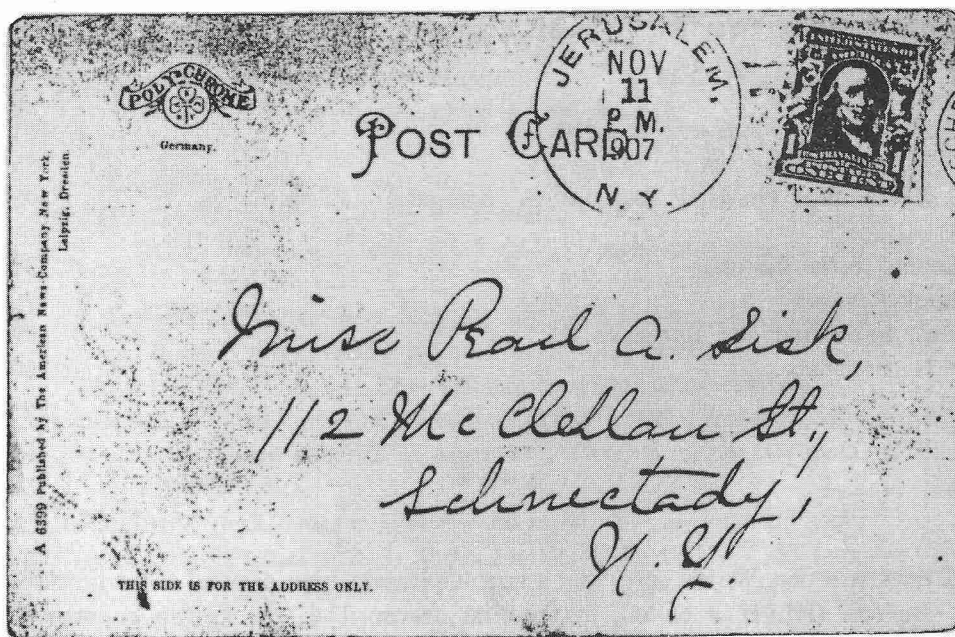 POLY-CHROME
Germany.
POST CARD
JERUSALEM,
NOV
11
P M.
1907
N. Y.
A 6399 Published by The American News-Company New York.
Leipzig, Dresden.
Miss Pearl A. Sisk,
112 McClellan St.,
Schnectady,
N. Y.
THIS SIDE IS FOR THE ADDRESS ONLY.